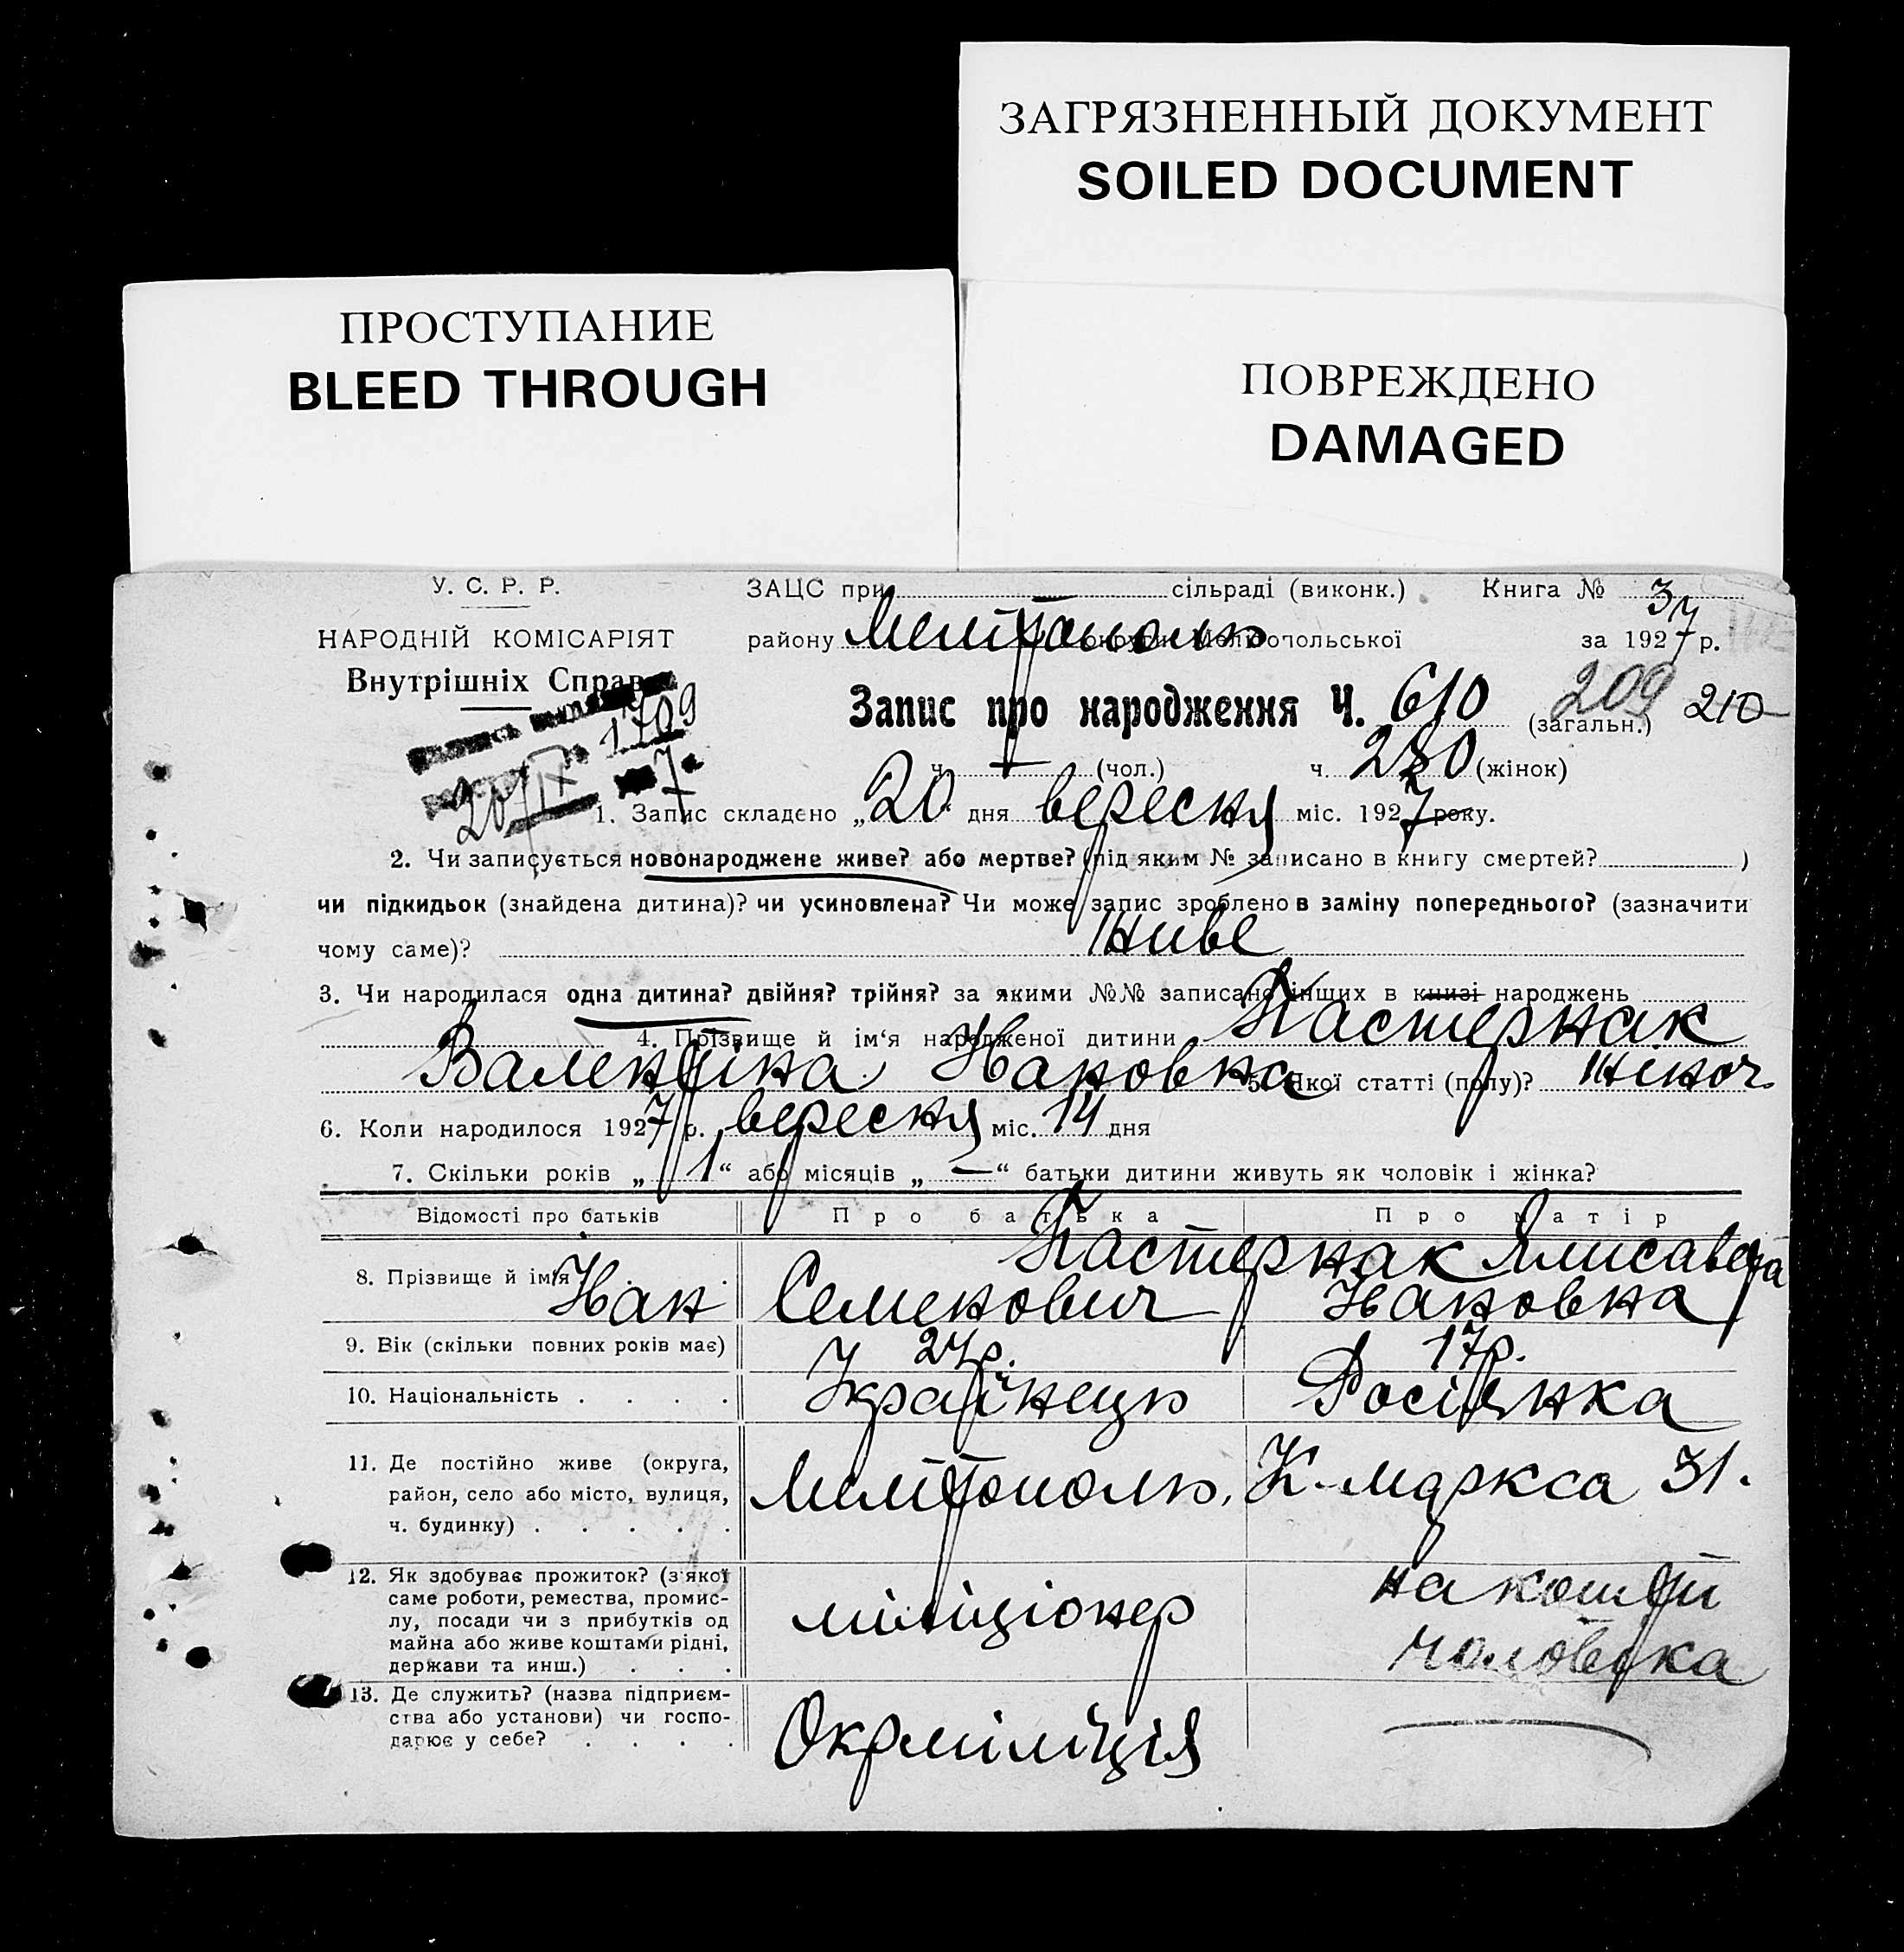 ЗАГРЯЗНЕННЫЙ ДОКУМЕНТ
SOILED DOCUMENT
ПРОСТУПАНИЕ
BLEED THROUGH
ПОВРЕЖДЕНО
DAMAGED
У. С. Р. Р.
НАРОДНІЙ КОМІСАРІЯТ
Внутрішніх Справ
ЗАЦС при сільраді (виконк.) Книга № 3
району Мелітополь округи Мелітопольської за 1927 р.
Запис про народження Ч. 610 (загальн.) 209 210
1709
20/IX 7
ч. — (чол.) ч. (жінок)
1. Запис складено „20 дня вересня міс. 1927 року.
2. Чи записується новонароджене живе? або мертве? (під яким № записано в книгу смертей? )
чи підкидьок (знайдена дитина)? чи усиновлена? Чи може запис зроблено в заміну попереднього? (зазначити
чому саме)? Живе
3. Чи народилася одна дитина? двійня? трійня? за якими №№ записано інших в книзі народжень
4. Прізвище й ім'я народженої дитини Пастернак
Валентіна Івановна 5. Якої статті (полу)? Жіноч
6. Коли народилося 1927 р. вересня міс. 14 дня
7. Скільки років „ 1 “ або місяців „ — “ батьки дитини живуть як чоловік і жінка?
Відомості про батьків Про батька Про матір
8. Прізвище й імя Пастернак Єлисавета
Іван Семенович Івановна
9. Вік (скільки повних років має) 27р. 17р.
10. Національність . . . . Українець Росіянка
11. Де постійно живе (округа,
район, село або місто, вулиця,
ч. будинку) . . . . .
Мелітополь, К. Маркса 31.
12. Як здобуває прожиток? (з якої
саме роботи, ремества, промис-
лу, посади чи з прибутків од
майна або живе коштами рідні,
держави та инш.) . . .
міліціонер
на кошти
чоловіка
13. Де служить? (назва підприєм-
ства або установи) чи госпо-
дарює у себе? . . . .
Окрміліція